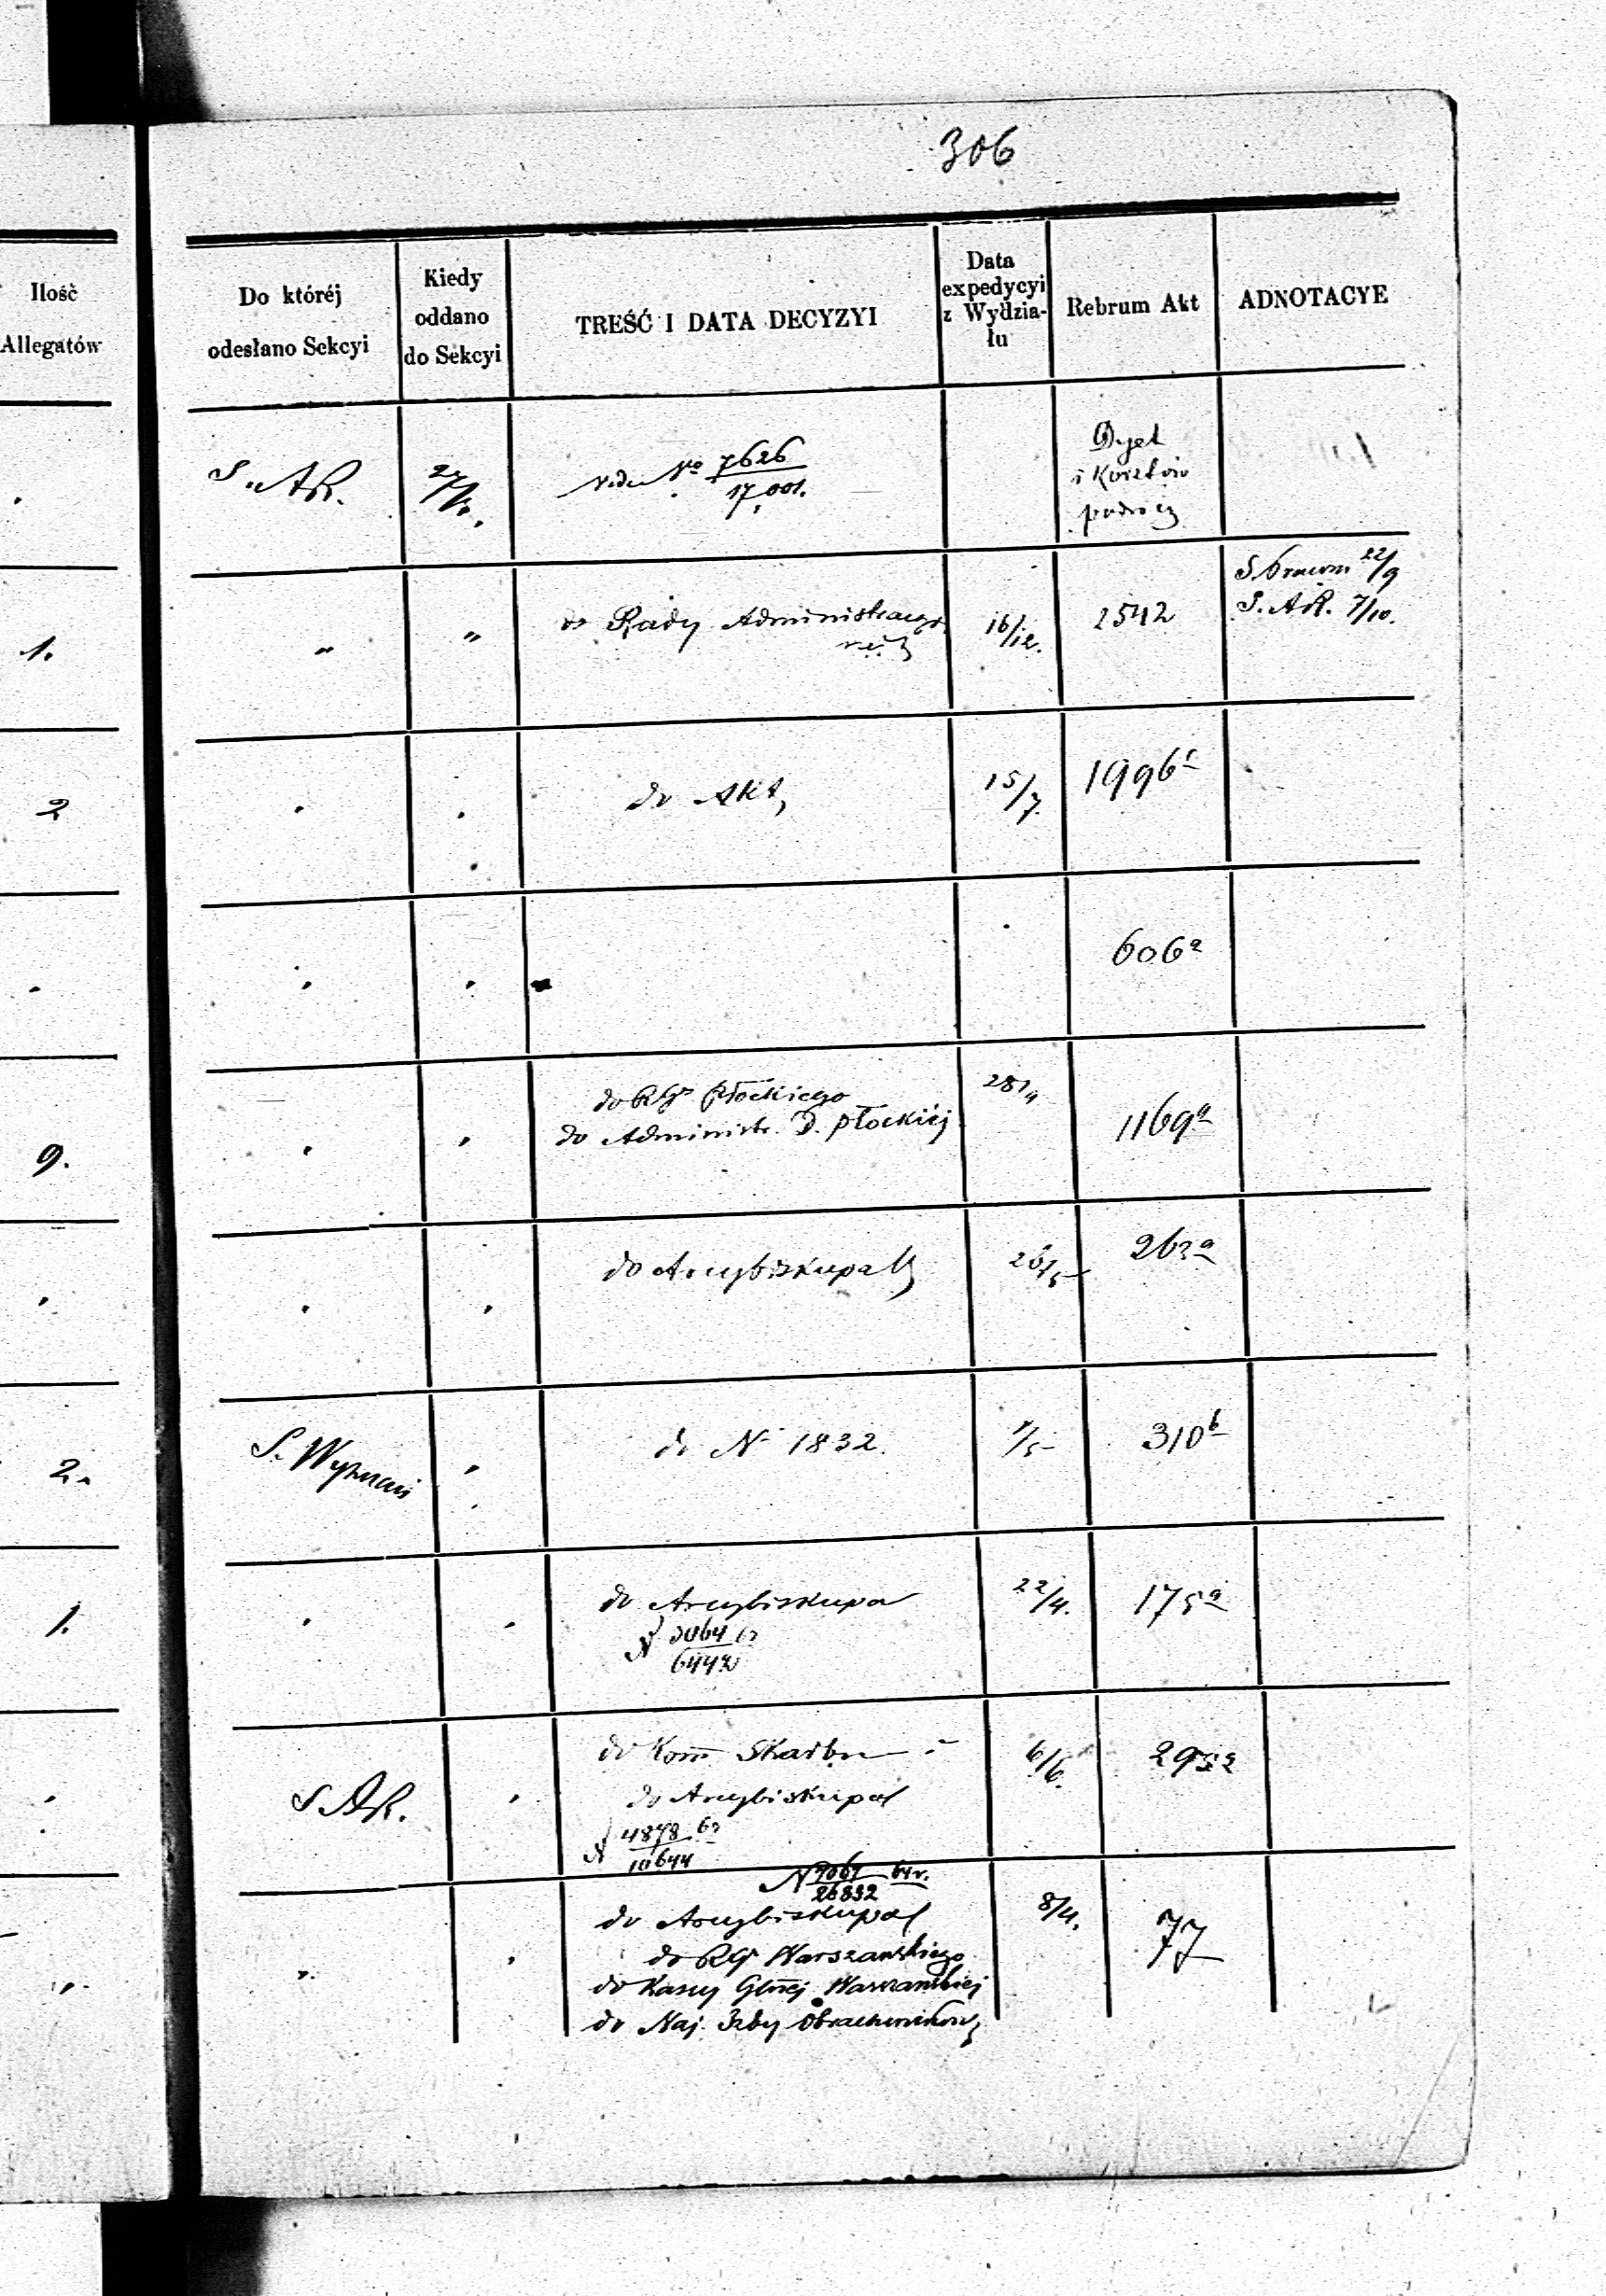 306
Ilość
Allegatów
Do któréj
odesłano Sekcyi
Kiedy
oddano
do Sekcyi
TREŚĆ I DATA DECYZYI
Data
expedycyi
z Wydzia-
łu
Rebrum Akt
ADNOTACYE
S. AR.
vide No 7626
17,001.
Dyet
i Kosztów
podróży
1.
"
"
do Rady Administracyj
16/12.
2542
S. Prawn 22/9
S. AR. 7/10.
2
do Akt
15/7.
1996
606a
9.
do RGo Płockiego
do Administr. D. Płockiéj
28/4
1169a
do Arcybiskupa W
26/5
263a
2.
S. Wyznań
do No 1832.
1/5
310b
1.
do Arcybiskupa
N 3064 63
6442
22/4.
175a
S AR.
do Kom Skarbu
do Arcybiskupa
N 4878 63
10644
6/6.
295a
N 7061 64 r.
26832
do Arcybiskupa
do RGo Warszawskiego
do Kassy Głnéj Warszawskiej
do Naj. Izby Obrachunkow
8/4.
77